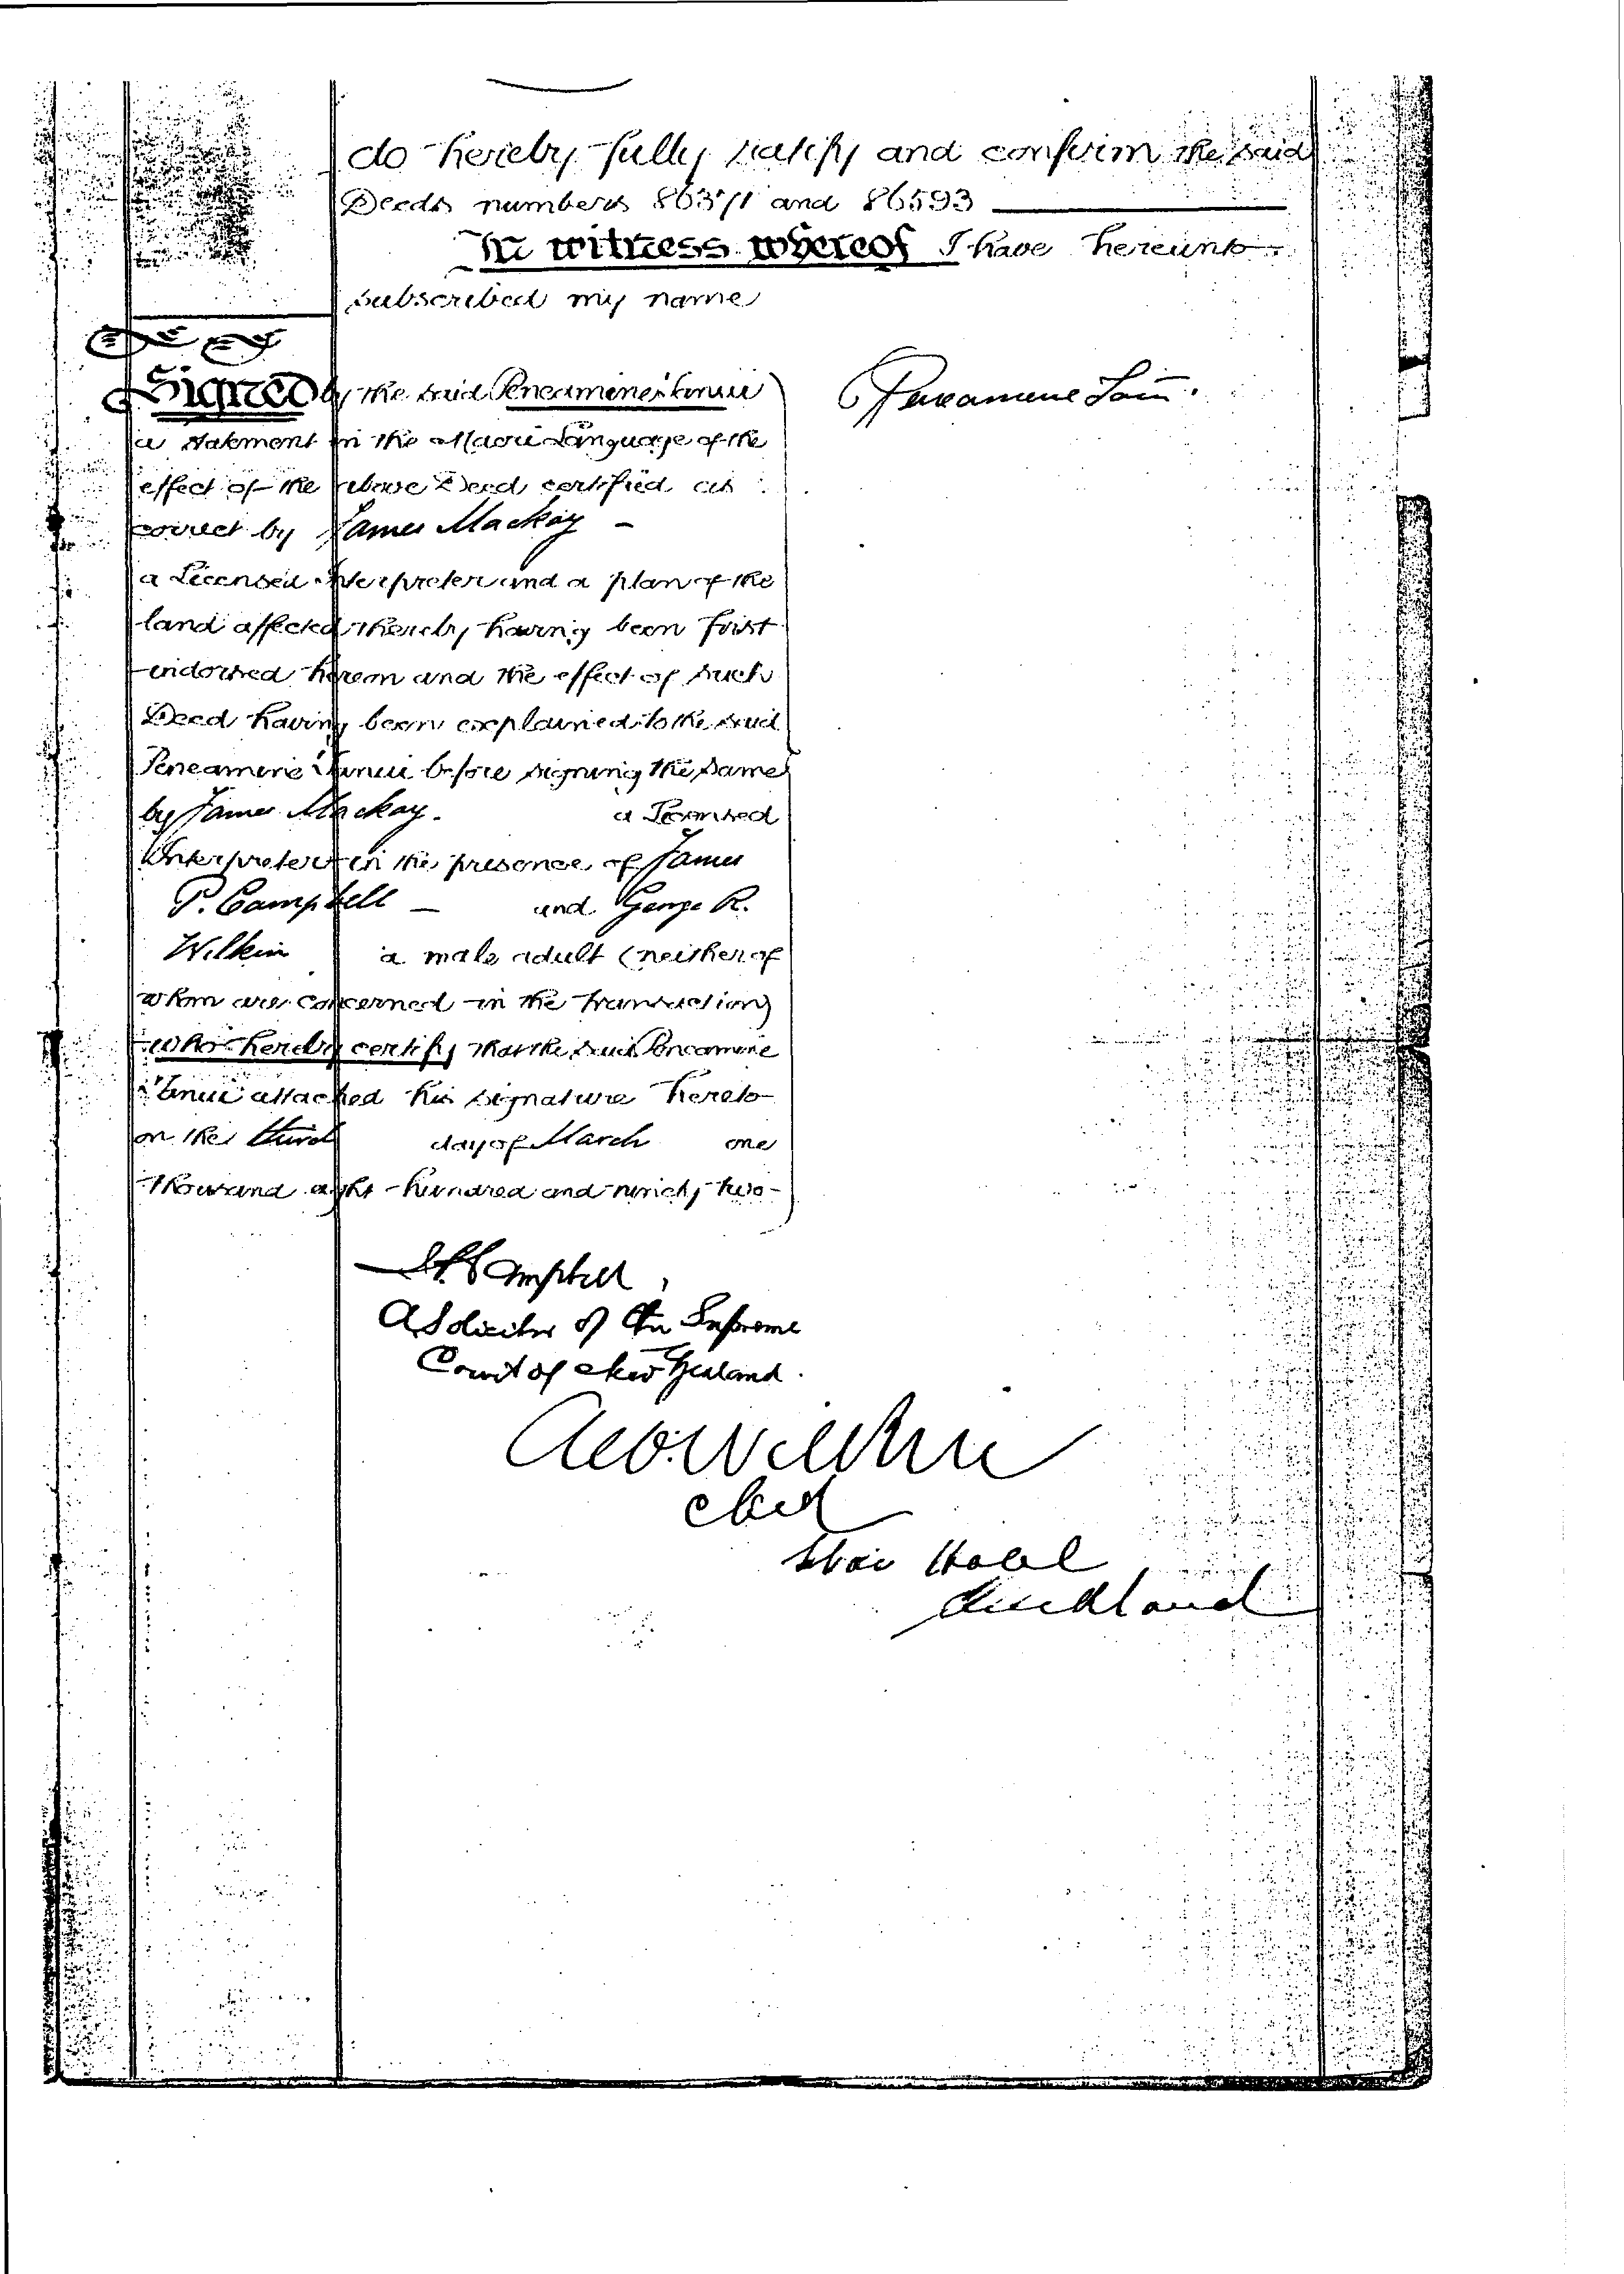 do hereby fully ratify and confirm the said
Deeds numbers 86371 and 86593
In witness whereof I have hereunto
subscribed my name
Signed by the said Peneamene Tanui
Peneamene
a statement in the Maori Language of the
effect of the above Deed certified as
correct by James Mackay
a Licensed Interpreter and a plan of the
land affected thereby having been first
endorsed hereon and the effect of such
Deed having been explained to the said
Peneamene Tanui before signing the same
by James Mackay. a Licensed
Interpreter in the presence of James
P. Campbell and George R.
Wilkin a male adult (neither of
whom are concerned in the transaction)
who hereby certify that the said Peneamene
Tanui attached his signature hereto
on the third day of March one
thousand eight hundred and ninety two
Campbell
A Solicitor of the Supreme
Court of New Zealand.
Geo. Wilkin
Hotel
Auckland